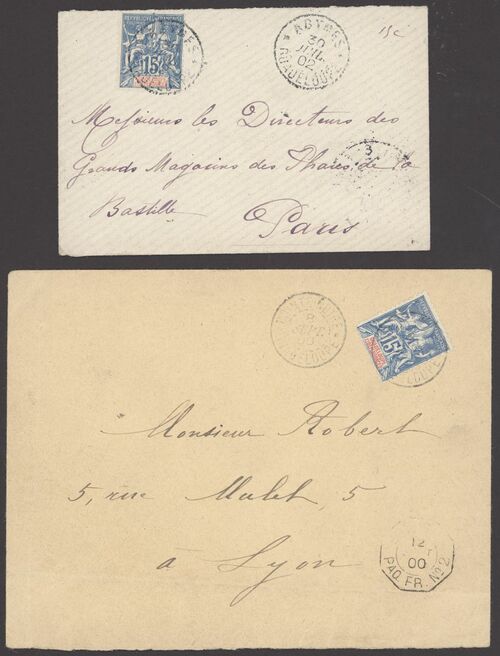 15
ABYMES
30
JUIL
02
GUADELOUPE
15c
Messieurs les Directeurs des
Grands Magasins des Phares de la
Bastille
Paris
3
8
SEPT
15
LOUPE
Monsieur Robert
5, rue Mulet, 5
à Lyon
12
00
PAQ. FR. No 2